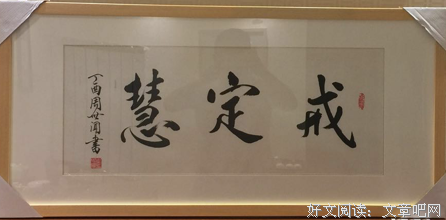 戒定慧
丁酉周書
好文阅读：文章吧网